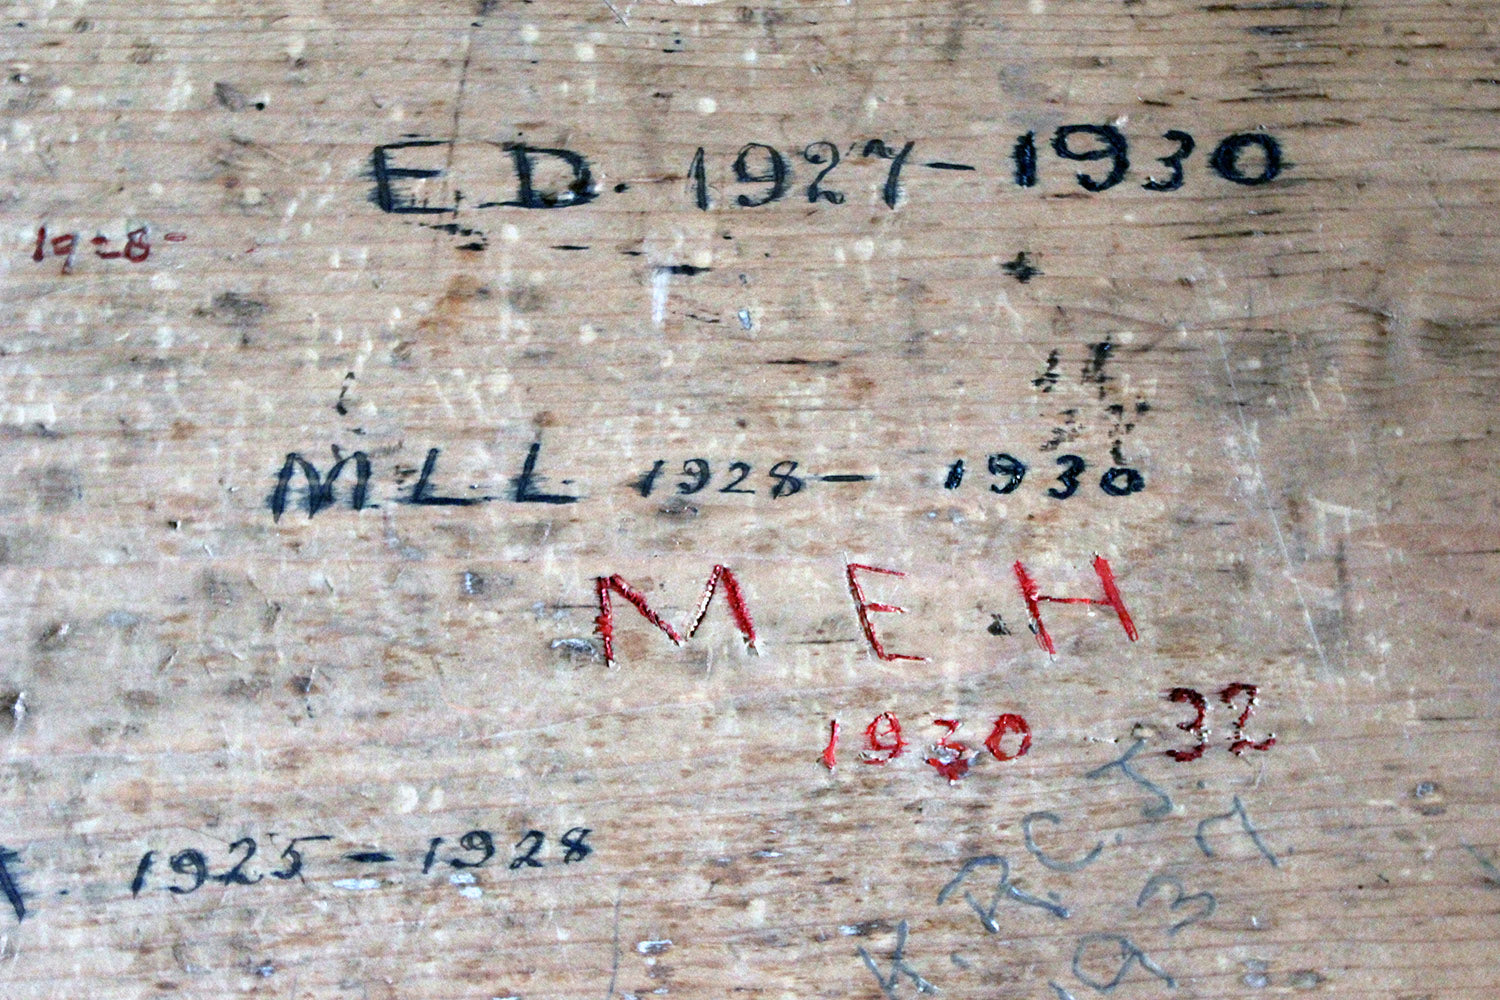 E.D. 1927-1930
1928-
M.L.L. 1928- 1930
M E H
1930 - 32
1925-1928
K.R.C.J.